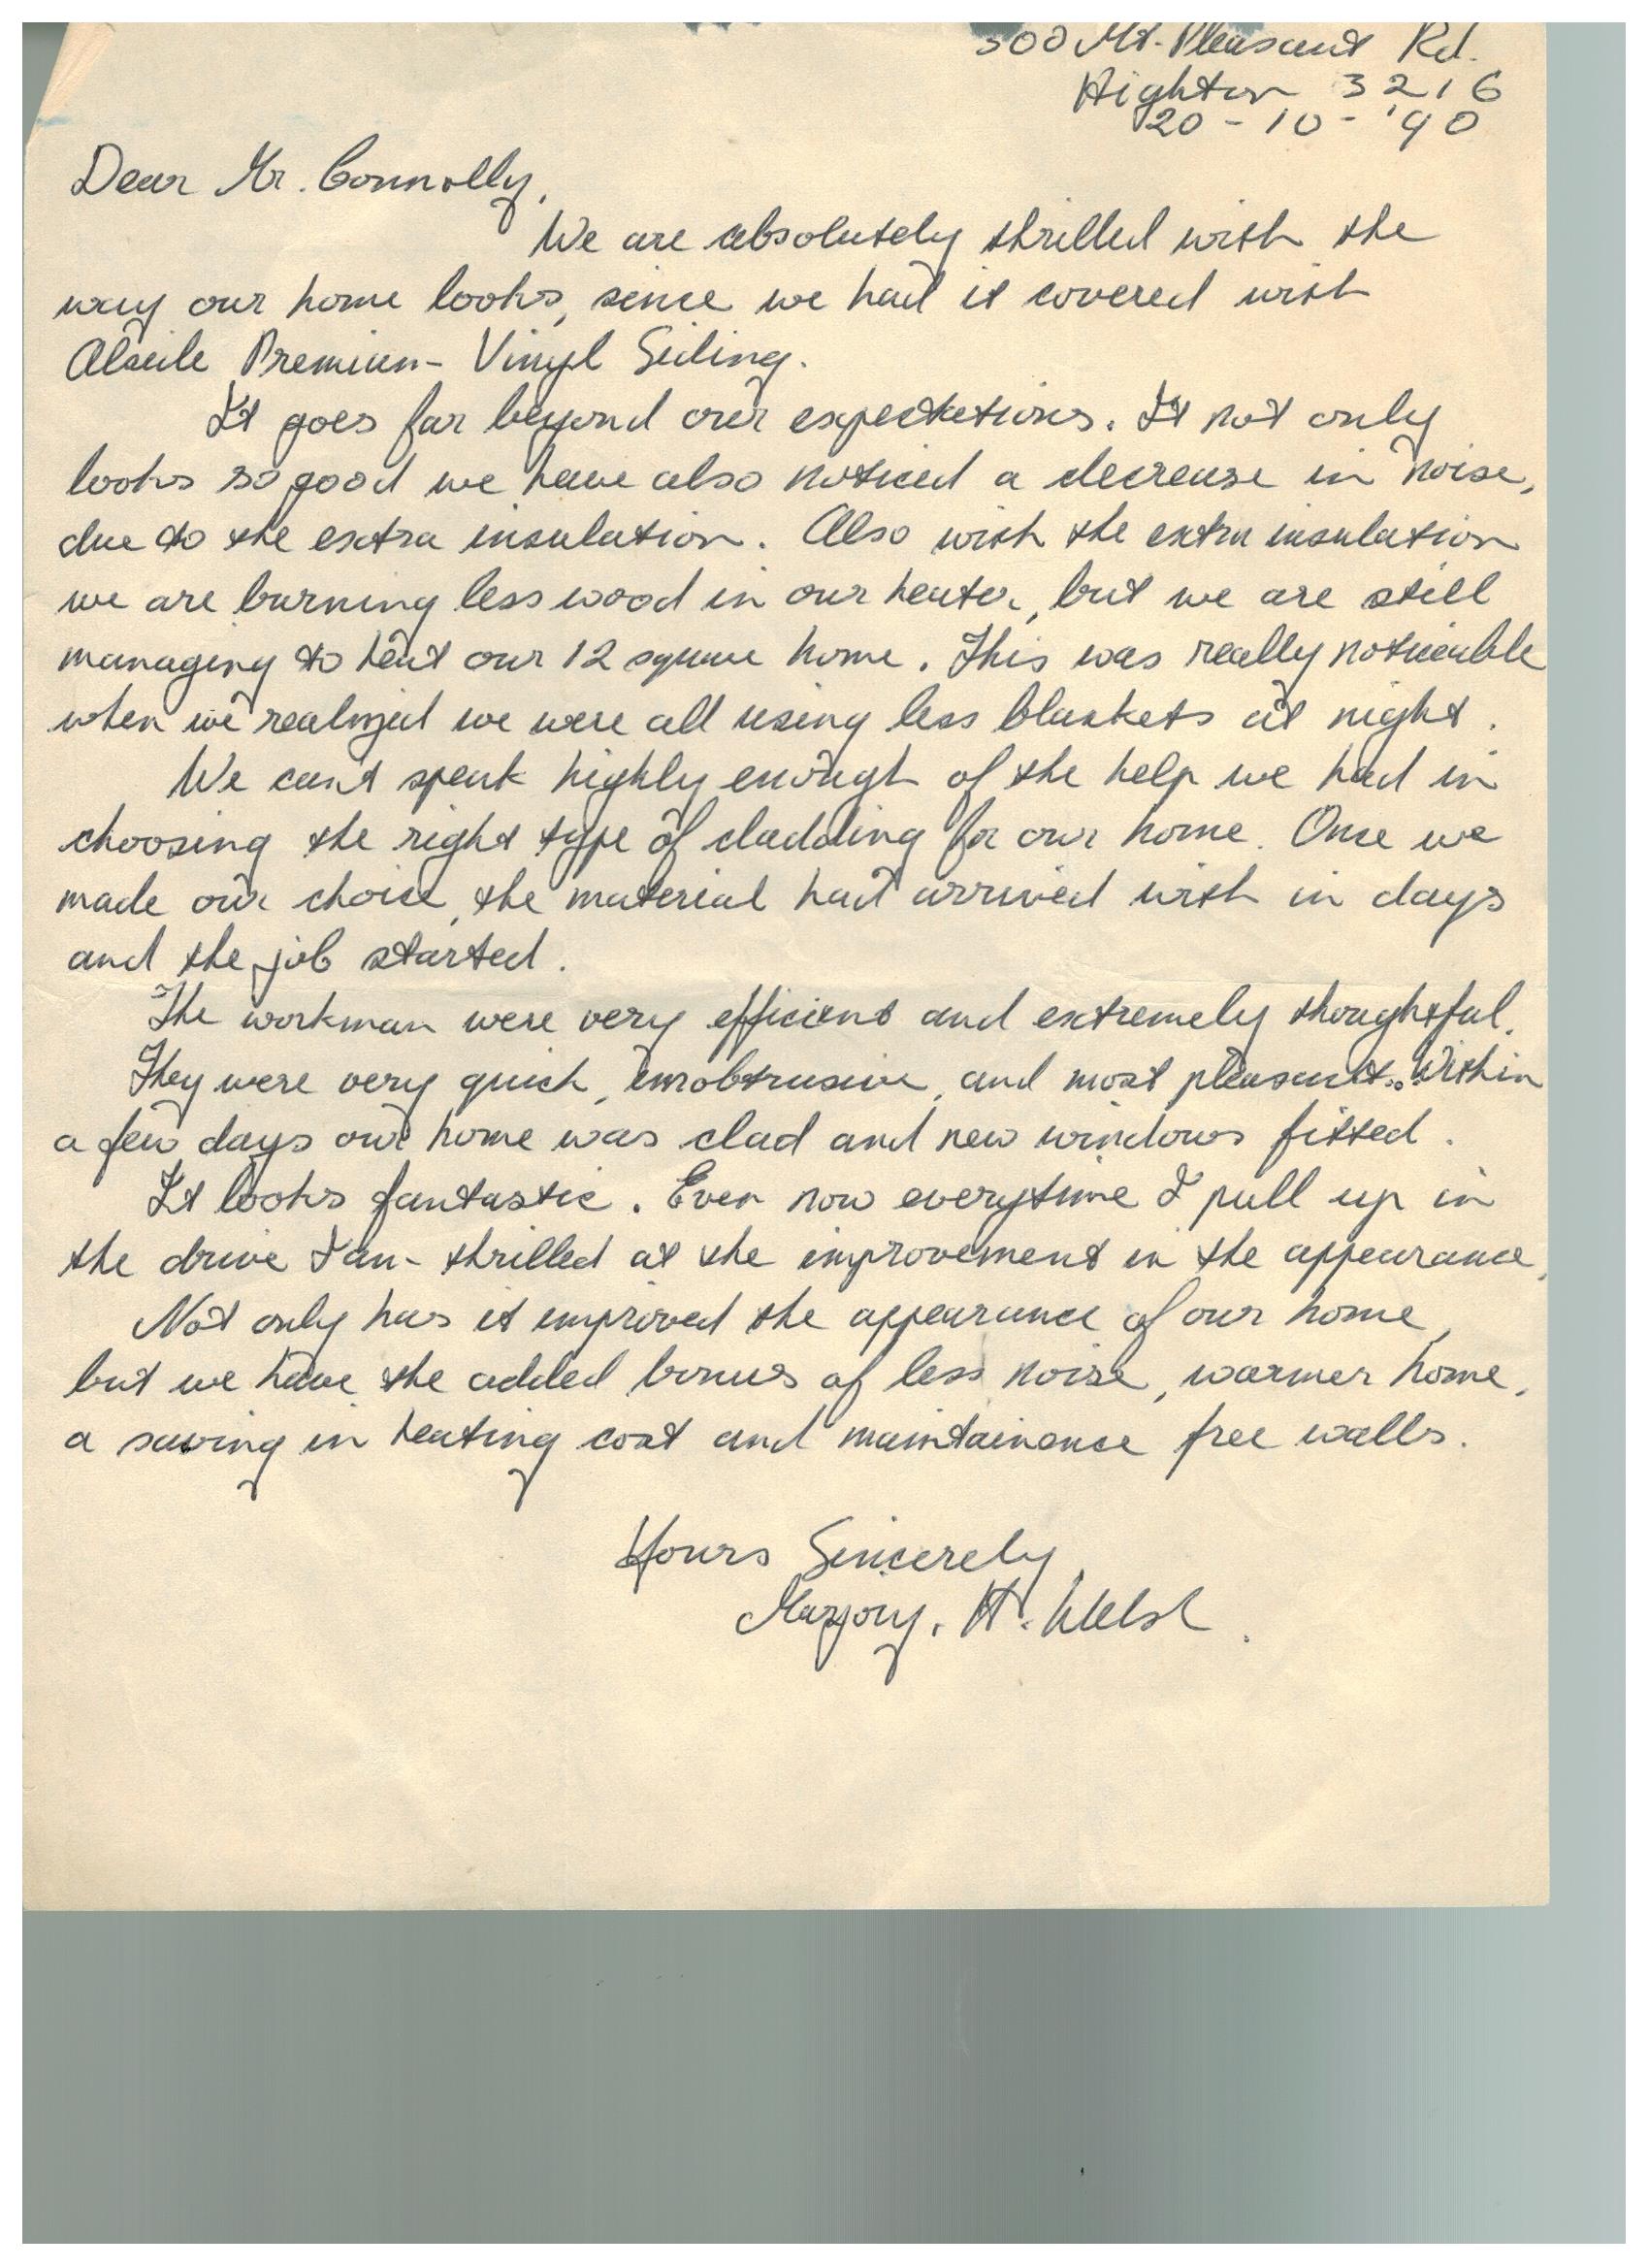 300 Mt. Pleasant Rd.
Highton 3216
20-10-'90
Dear Mr. Connolly,
We are absolutely thrilled with the
way our home looks, since we had it covered with
Premium Vinyl Siding.
It goes far beyond our expectations. It not only
looks so good we have also noticed a decrease in noise,
due to the extra insulation. Also with the extra insulation
we are burning less wood in our heater, but we are still
managing to heat our 12 square home. This was really noticeable
when we realized we were all using less blankets at night.
We can't speak highly enough of the help we had in
choosing the right type of cladding for our home. Once we
made our choice, the material had arrived with in days
and the job started.
The workman were very efficient and extremely thoughtful.
They were very quick, unobtrusive, and most pleasant. Within
a few days our home was clad and new windows fitted.
It looks fantastic. Even now everytime I pull up in
the drive I am thrilled at the improvement in the appearance.
Not only has it improved the appearance of our home,
but we have the added bonus of less noise, warmer home,
a saving in heating cost and maintainence free walls.
Yours Sincerely,
Marjory. H. Welsh.